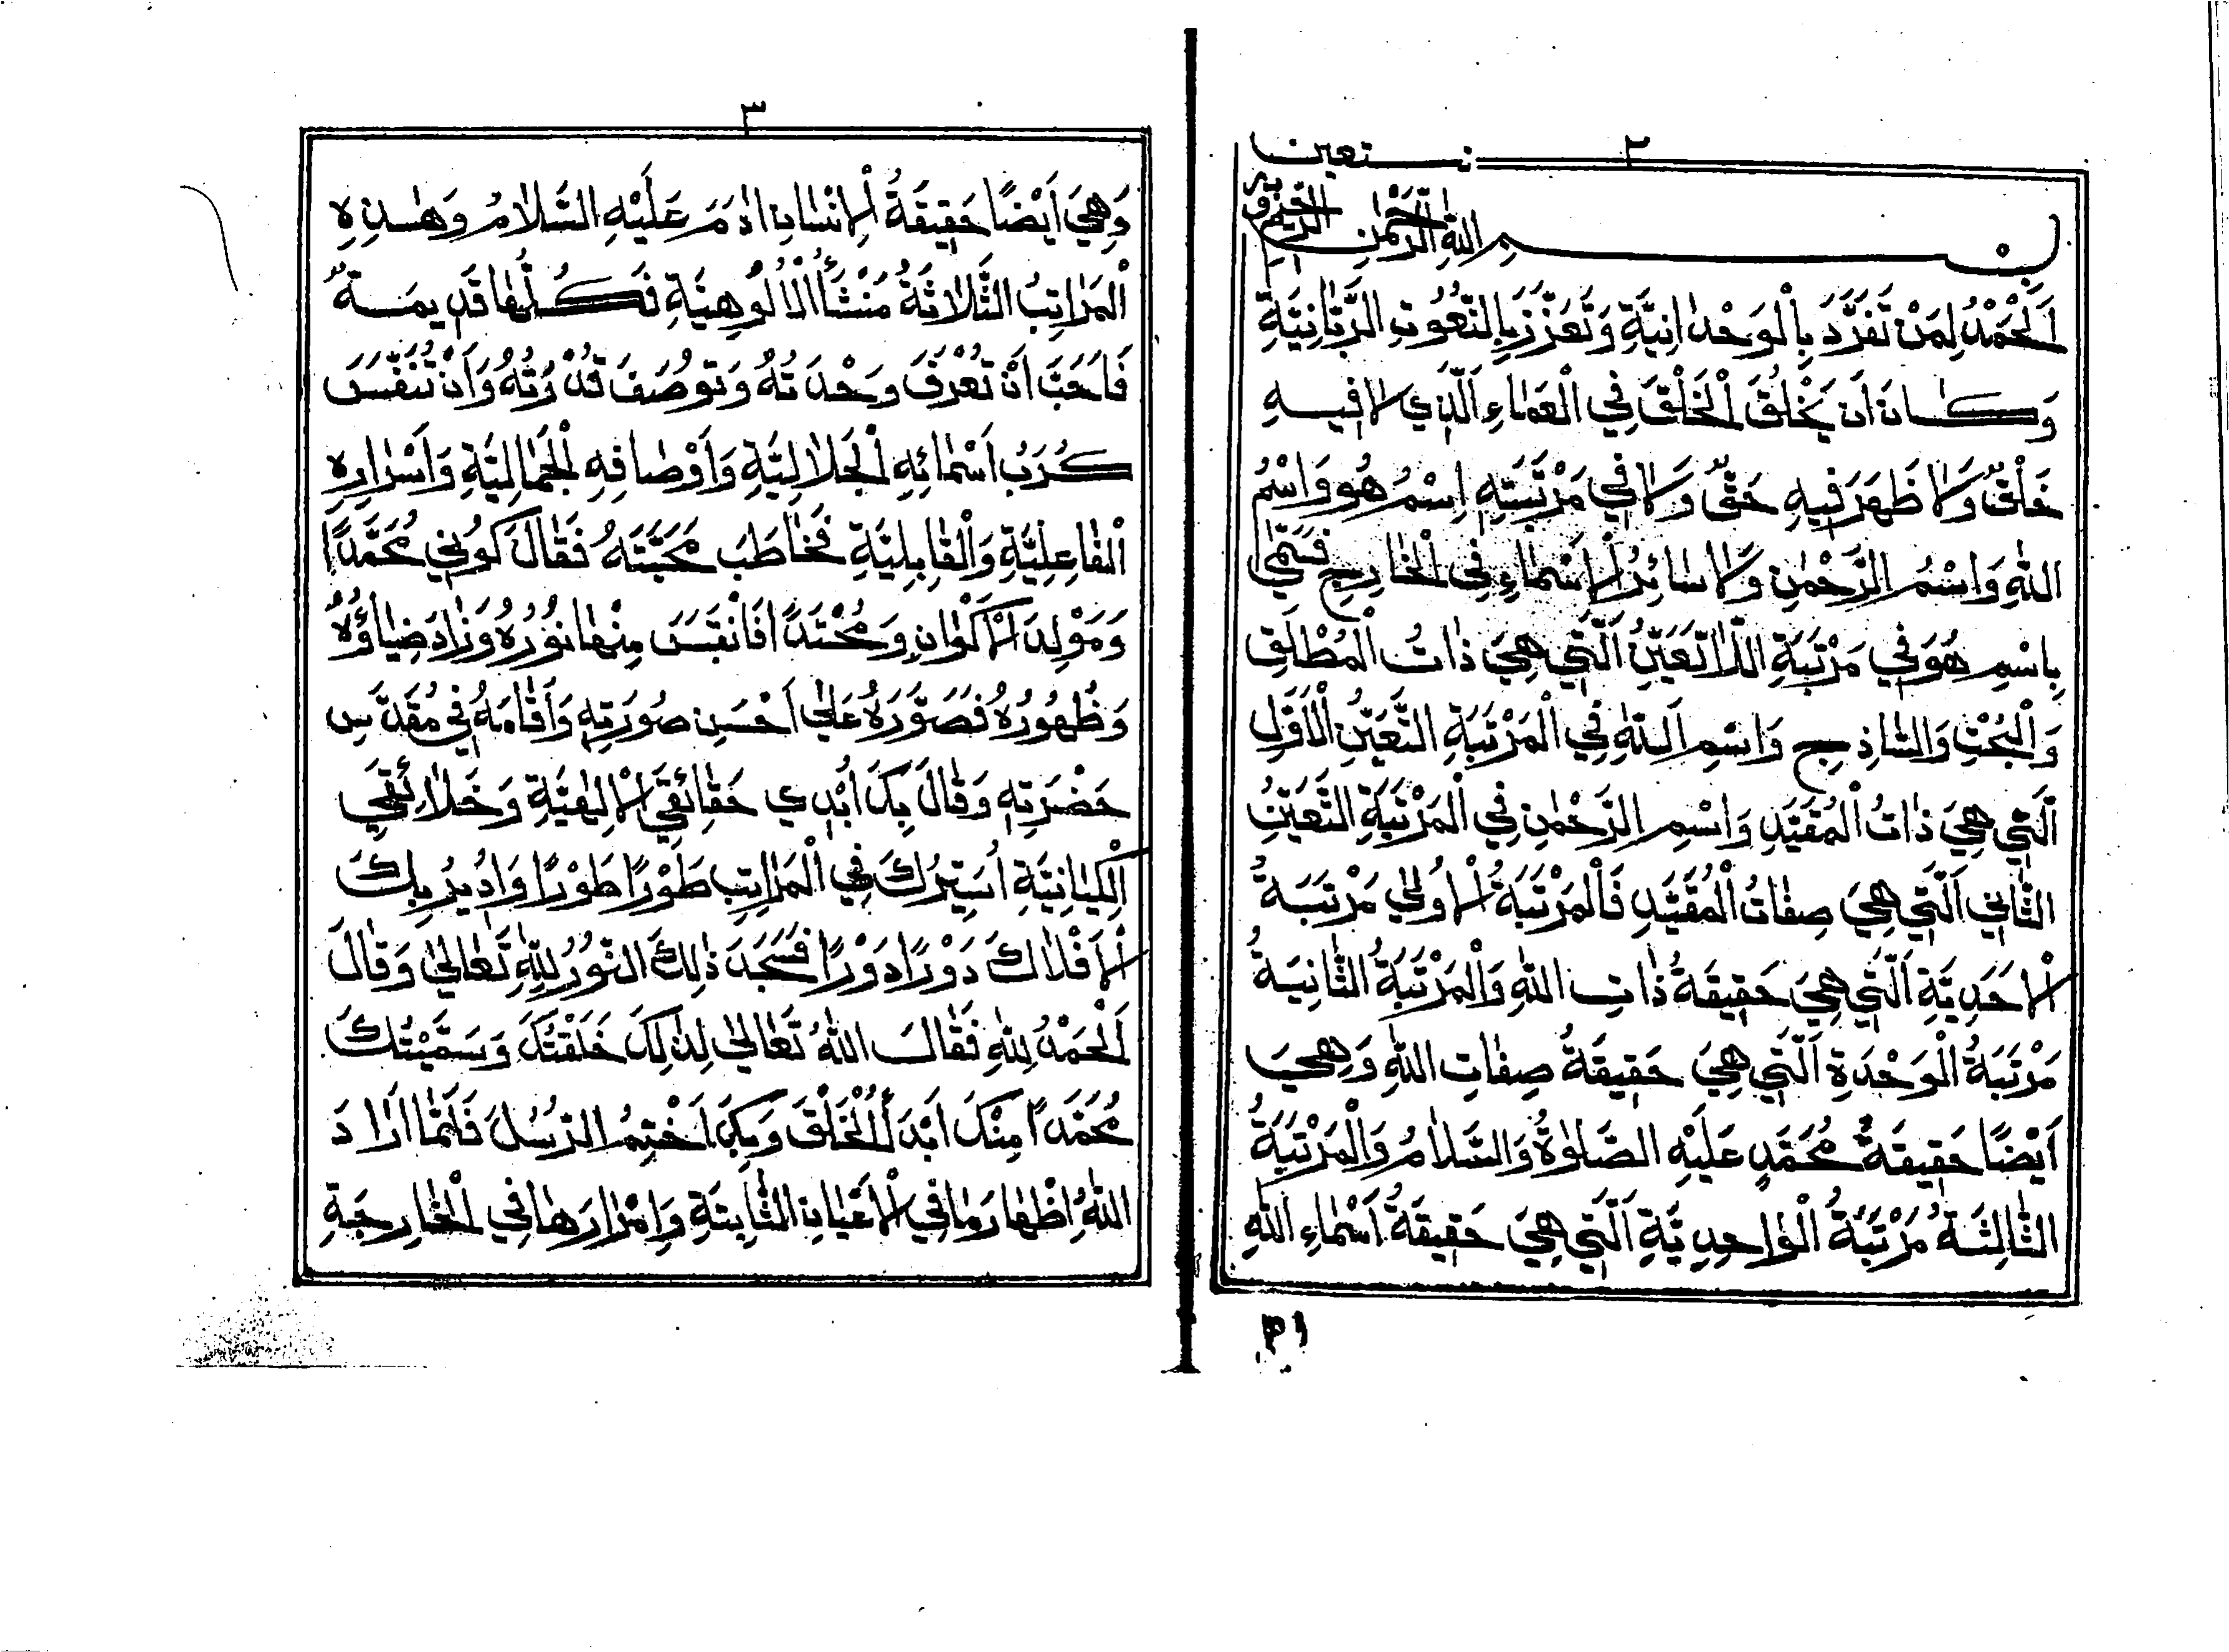 ٢
نستعين
بِسْمِ اللهِ الرَّحْمٰنِ الرَّحِيمِ وَبِهِ
اَلْحَمْدُ لِمَنْ تَفَرَّدَ بِالْوَحْدَانِيَّةِ وَتَعَزَّزَ بِالنُّعُوتِ الرَّبَّانِيَّةِ
وَكَانَ اَن يَخْلُقَ الْخَلْقَ فِي الْعَمَاءِ اَلَّذِي لَا فِيهِ
خَلْقٌ وَلَا ظَهَرَ فِيهِ حَقٌّ وَلَا فِي مَرْتَبَتِهِ اِسْمُ هُو وَاسْمُ
اللهِ وَاسْمُ الرَّحْمٰنِ وَلَا سَائِرُ الْاَسْمَاءِ فِي الْخَارِجِ فَسُمِّيَ
بِاسْمِ هُوَ فِي مَرْتَبَةِ اللَّاتَعَيُّنِ الَّتِي هِيَ ذَاتُ الْمُطْلَقِ
وَالْبُحْتِ وَالسَّاذِجِ وَاسْمِ اَللهِ فِي الْمَرْتَبَةِ التَّعَيُّنِ الْاَوَّلِ
اَلَّتِي هِيَ ذَاتُ الْمُقَيَّدِ وَاسْمِ الرَّحْمٰنِ فِي الْمَرْتَبَةِ التَّعَيُّنِ
الثَّانِي اَلَّتِي هِيَ صِفَاتُ الْمُقَيَّدِ فَالْمَرْتَبَةُ الْاُولٰى مَرْتَبَةُ
الْاَحَدِيَّةِ الَّتِي هِيَ حَقِيقَةُ ذَاتِ اللهِ وَالْمَرْتَبَةُ الثَّانِيَةُ
مَرْتَبَةُ الْوَحْدَةِ اَلَّتِي هِيَ حَقِيقَةُ صِفَاتِ اللهِ وَهِيَ
اَيْضًا حَقِيقَةُ مُحَمَّدٍ عَلَيْهِ الصَّلٰوةُ وَالسَّلَامُ وَالْمَرْتَبَةُ
الثَّالِثَةُ مَرْتَبَةُ الْوَاحِدِيَّةِ اَلَّتِي هِيَ حَقِيقَةُ اَسْمَاءِ اللهِ
٣
وَهِيَ اَيْضًا حَقِيقَةُ الْاِنْسَانِ اٰدَمَ عَلَيْهِ السَّلَامُ وَهٰذِهِ
الْمَرَاتِبُ الثَّلَاثَةُ مَنْشَأُ الْاُلُوهِيَّةِ فَكُلُّهَا قَدِيمَةٌ
فَاَحَبَّ اَنْ تُعْرَفَ وَحْدَتُهُ وَتُوصَفَ قُدْرَتُهُ وَاَنْ تُنَفَّسَ
كُرَبُ اَسْمَائِهِ الْجَلَالِيَّةِ وَاَوْصَافِهِ الْجَمَالِيَّةِ وَاَسْرَارِهِ
الْفَاعِلِيَّةِ وَالْقَابِلِيَّةِ فَخَاطَبَ مَحَبَّتَهُ فَقَالَ كُونِي مُحَمَّدًا
وَمَوْلِدَ الْاَكْوَانِ وَمُحْتَدًا فَانْقَبَسَ مِنْهَا نُورُهُ وَزَادَ ضِيَاؤُهُ
وَظُهُورُهُ فَصَوَّرَهُ عَلٰى اَحْسَنِ صُورَتِهِ وَاَقَامَهُ فِي مُقَدَّسِ
حَضْرَتِهِ وَقَالَ بِكَ اُبْدِي حَقَائِقِي الْاِلٰهِيَّةِ وَخَلَائِقِي
الْكِيَانِيَّةِ اُسَيِّرُكَ فِي الْمَرَاتِبِ طَوْرًا طَوْرًا وَاُدِيرُ بِكَ
الْاَفْلَاكَ دَوْرًا دَوْرًا فَسَجَدَ ذٰلِكَ النُّورُ لِلّٰهِ تَعَالٰى وَقَالَ
اَلْحَمْدُ لِلهِ فَقَالَ اللهُ تَعَالٰى لِذٰلِكَ خَلَقْتُكَ وَسَمَّيْتُكَ
مُحَمَّدًا مِنْكَ اَبْدَأُ الْخَلْقَ وَبِكَ اَخْتِمُ الرُّسُلَ فَلَمَّا اَرَادَ
اللهُ اِظْهَارَ مَا فِي الْاَعْيَانِ الثَّابِتَةِ وَاِمْرَارَهَا فِي الْخَارِجَةِ